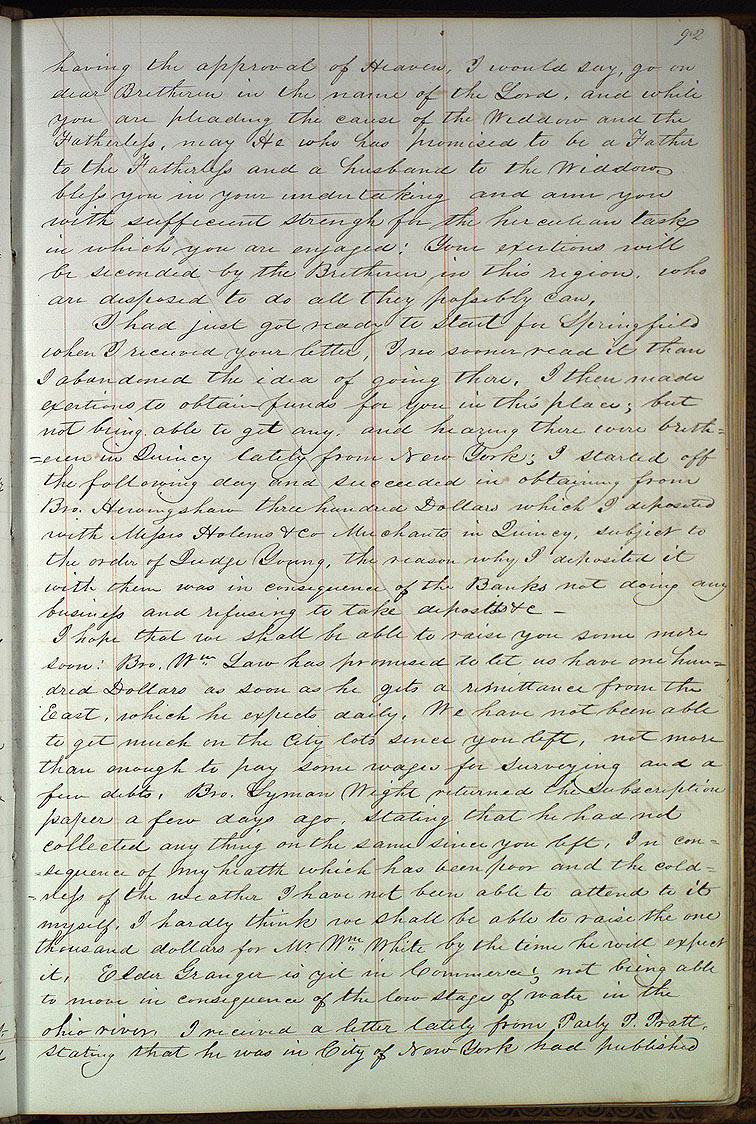 92
having the approval of Heaven, I would say, go on
dear Bretheren in the name of the Lord, and while
you are pleading the cause of the Widdow and the
Fatherless, may He who has promised to be a Father
to the Fatherless and a husband to the Widdow,
bless you in your undertaking and arm you
with sufficient strengh for the herculian task
in which you are engaged: Your exertions will
be seconded by the Bretheren in this region, who
are disposed to do all they possibly can,
I had just got ready to start for Springfield
when I received your letter, I no sooner read it than
I abandoned the idea of going there, I then made
exertions to obtain funds for you in this place; but
not being able to get any, and hearing there were breth=
=eren in Quincy lately from New York; I started off
the following day and succeeded in obtaining from
Bro. Herringshaw three hundred Dollars which I deposited
with Messrs Holems & Co Merchants in Quincy, subject to
the order of Judge Young, the reason why I deposited it
with them was in consequence of the Banks not doing any
business and refusing to take deposits &c -
I hope that we shall be able to raise you some more
soon: Bro. Wm Law has promised to let us have one hun=
dred Dollars as soon as he gets a remittance from the
East, which he expects daily, We have not been able
to get much on the City lots since you left, not more
than enough to pay some wages for surveying and a
few debts, Bro. Lyman Wight returned the subscription
paper a few days ago, stating that he had not
collected any thing on the same since you left, In con=
=sequence of my health which has been poor and the cold=
=ness of the weather I have not been able to attend to it
myself, I hardly think we shall be able to raise the one
thousand dollars for Mr Wm White by the time he will expect
it, Elder Granger is yit in Commerce; not being able
to move in consequence of the low stage of water in the
ohio river, I received a letter lately from Parly P. Pratt,
stating that he was in City of New York had published